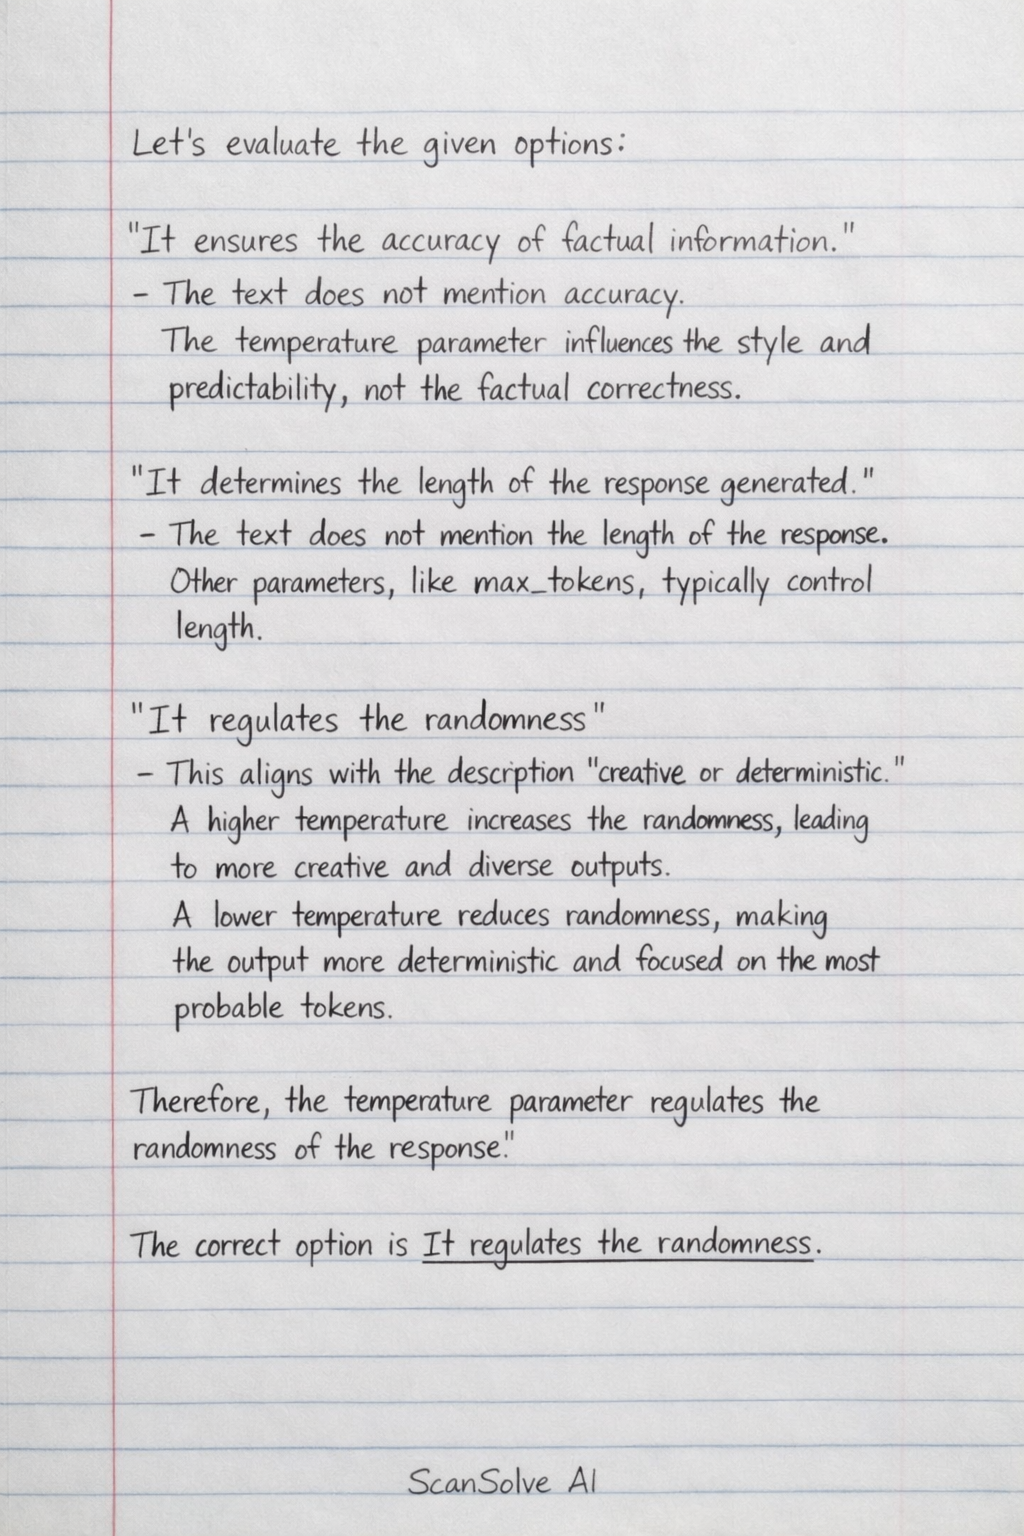 Let's evaluate the given options:
"It ensures the accuracy of factual information."
- The text does not mention accuracy.
The temperature parameter influences the style and
predictability, not the factual correctness.
"It determines the length of the response generated."
- The text does not mention the length of the response.
Other parameters, like max_tokens, typically control
length.
"It regulates the randomness"
- This aligns with the description "creative or deterministic."
A higher temperature increases the randomness, leading
to more creative and diverse outputs.
A lower temperature reduces randomness, making
the output more deterministic and focused on the most
probable tokens.
Therefore, the temperature parameter regulates the
randomness of the response."
The correct option is It regulates the randomness.
ScanSolve AI